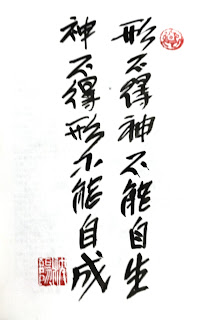 形不得神不能自生
神不得形不能自成